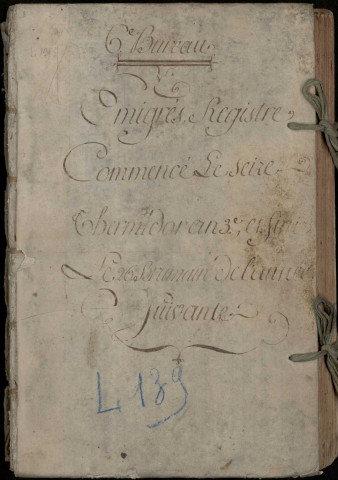 6e Bureau
Emigrés, Registre
Commencé Le seize
thermidor an 3e, et fini
Le brumaire de l'année
Suivante
L 139